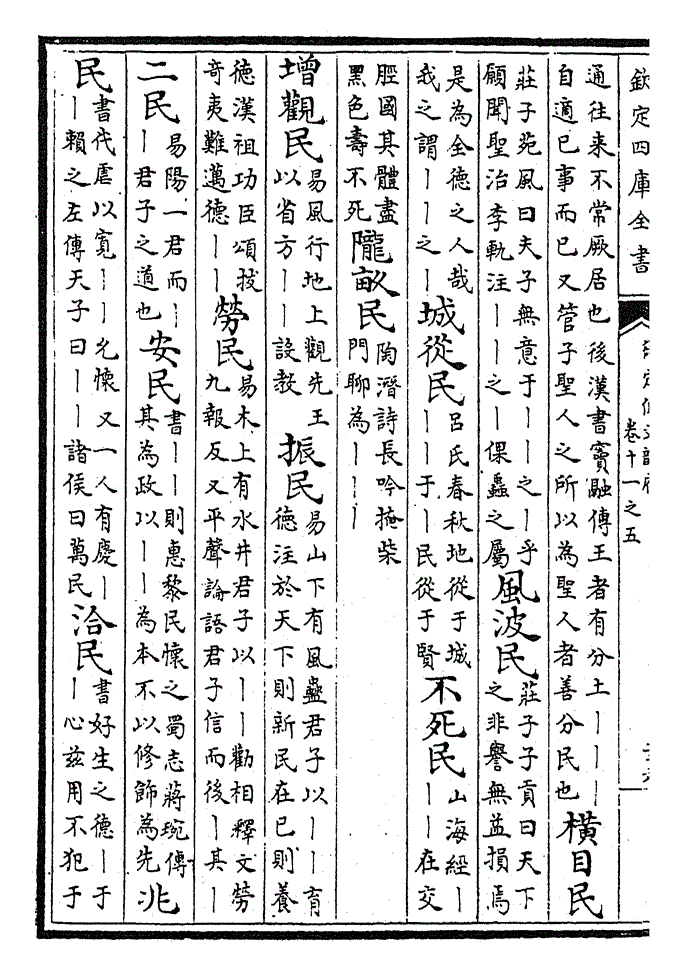 欽定四庫全書
卷十一之五
通往来不常厥居也後漢書竇融傳王者有分土丨丨丨
自適已事而已又管子聖人之所以為聖人者善分民也
橫目民
莊子苑風曰夫子無意于丨丨之丨乎
願聞聖治李軌注丨丨之丨倮蟲之屬
風波民
莊子子貢曰天下
之非譽無益損焉
是為全德之人哉
我之謂丨丨之丨
城從民
呂氏春秋地從于城
丨丨于丨民從于賢
不死民
山海經丨
丨丨在交
脛國其體盡
黑色壽不死
隴畝民
陶潛詩長吟掩柴
門聊為丨丨丨
增觀民
易風行地上觀先王
以省方丨丨設教
振民
易山下有風蠱君子以丨丨育
德注於天下則新民在已則養
德漢祖功臣頌拔
奇夷難邁德丨丨
勞民
易木上有水井君子以丨丨勸相釋文勞
九報反又平聲論語君子信而後丨其丨
二民
易陽一君而丨
丨君子之道也
安民
書丨丨則惠黎民懷之蜀志蔣琬傳
其為政以丨丨為本不以修飾為先
兆
民
書代虐以寬丨丨允懷又一人有慶丨
丨賴之左傳天子曰丨丨諸侯曰萬民
洽民
書好生之德丨于
丨心兹用不犯于